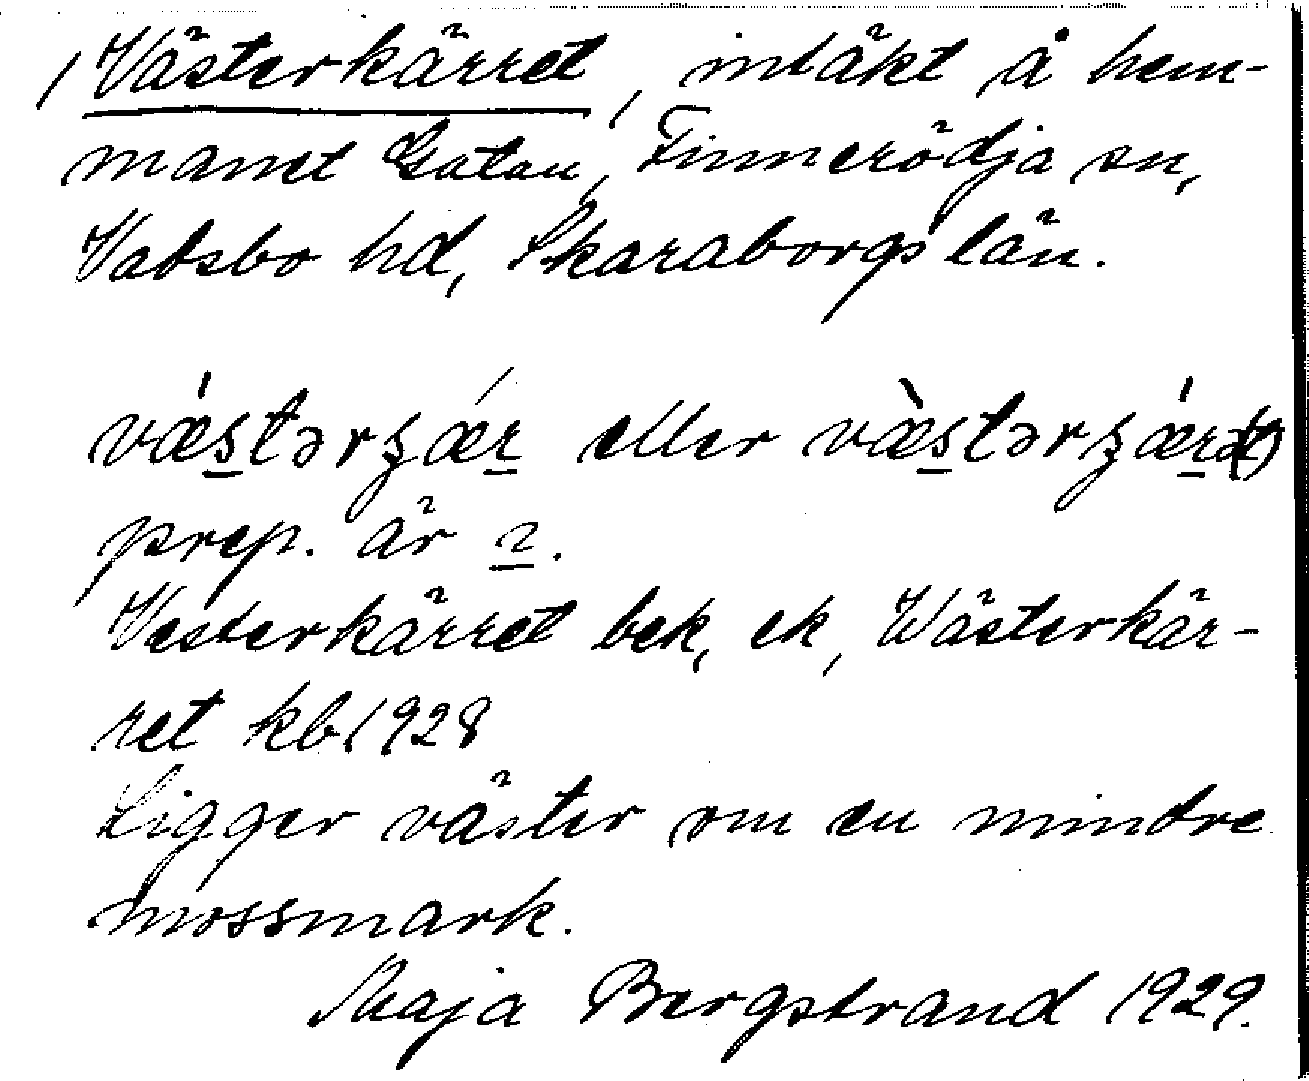 / Västerkärret, intäkt å hem-
manet Gatan, Finnerödja sn,
Vadsbo hd, Skaraborgs län.
væ̀stərʒǽr eller væ̀stərʒǽrə(t)
prep. är
Vesterkärret bek, ek, Wästerkär-
ret kb 1928
Ligger väster om en mindre
mossmark.
Maja Bergstrand 1929.